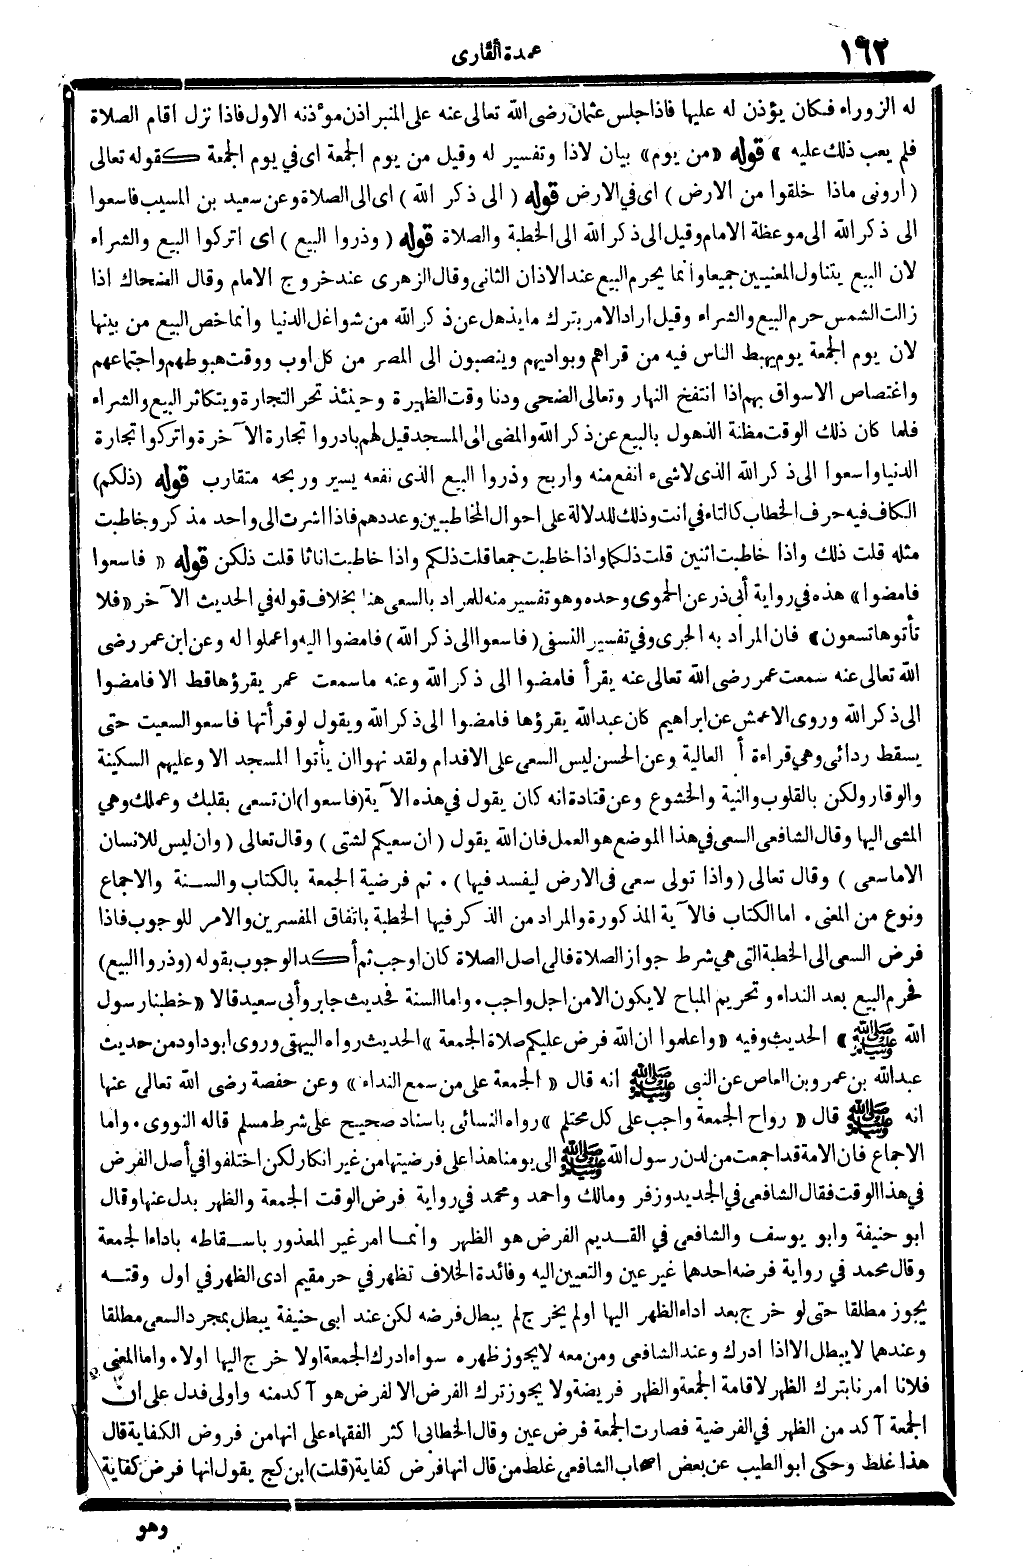 ١٦٢
عمدة القارى
له الزوراء فكان يؤذن له عليها فاذا جلس عثمان رضى الله تعالى عنه على المنبر اذن مؤذنه الاول فاذا نزل اقام الصلاة
فلم يعب ذلك عليه » قوله «من يوم» بيان لاذا وتفسير له وقيل من يوم الجمعة اى في يوم الجمعة كقوله تعالى
(ارونى ماذا خلقوا من الارض) اى في الارض قوله (الى ذكر الله) اى الى الصلاة وعن سعيد بن المسيب فاسعوا
الى ذكر الله الى موعظة الامام وقيل الى ذكر الله الى الخطبة والصلاة قوله (وذروا البيع) اى اتركوا البيع والشراء
لان البيع يتناول المعنيين جميعا وانما يحرم البيع عند الاذان الثانى وقال الزهرى عند خروج الامام وقال الضحاك اذا
زالت الشمس حرم البيع والشراء وقيل اراد الامر بترك ما يذهل عن ذكر الله من شواغل الدنيا وانما خص البيع من بينها
لان يوم الجمعة يوم يهبط الناس فيه من قراهم وبواديهم وينصبون الى المصر من كل اوب ووقت هبوطهم واجتماعهم
واغتصاص الاسواق بهم اذا انتفخ النهار وتعالى الضحى ودنا وقت الظهيرة وحينئذ تحر التجارة ويتكاثر البيع والشراء
فلما كان ذلك الوقت مظنة الذهول بالبيع عن ذكر الله والمضى الى المسجد قيل لهم بادروا تجارة الآخرة واتركوا تجارة
الدنيا واسعوا الى ذكر الله الذى لاشىء انفع منه واربح وذروا البيع الذى نفعه يسير وربحه متقارب قوله (ذلكم)
الكاف فيه حرف الخطاب كالتاء في انت وذلك للدلالة على احوال المخاطبين وعددهم فاذا اشرت الى واحد مذكر وخاطبت
مثله قلت ذلك واذا خاطبت اثنين قلت ذلكما واذا خاطبت جمعا قلت ذلكم واذا خاطبت اناثا قلت ذلكن قوله «فاسعوا
فامضوا» هذه في رواية أبى ذر عن الحموى وحده وهو تفسير منه للمراد بالسعى هنا بخلاف قوله في الحديث الآخر «فلا
تأتوها تسعون» فان المراد به الجرى وفي تفسير النسفى (فاسعوا الى ذكر الله) فامضوا اليه واعملوا له وعن ابن عمر رضى
الله تعالى عنه سمعت عمر رضى الله تعالى عنه يقرأ فامضوا الى ذكر الله وعنه ما سمعت عمر يقرؤها قط الا فامضوا
الى ذكر الله وروى الاعمش عن ابراهيم كان عبدالله يقرؤها فامضوا الى ذكر الله ويقول لو قرأتها فاسعوا لسعيت حتى
يسقط ردائى وهى قراءة أ العالية وعن الحسن ليس السعى على الاقدام ولقد نهوا ان يأتوا المسجد الا وعليهم السكينة
والوقار ولكن بالقلوب والنية والخشوع وعن قتادة انه كان يقول في هذه الآية (فاسعوا) ان تسعى بقلبك وعملك وهى
المشى اليها وقال الشافعى السعى في هذا الموضع هو العمل فان الله يقول (ان سعيكم لشتى) وقال تعالى (وان ليس للانسان
الا ما سعى) وقال تعالى (واذا تولى سعى فى الارض ليفسد فيها) . ثم فرضية الجمعة بالكتاب والسنة والاجماع
ونوع من المعنى . اما الكتاب فالآية المذكورة والمراد من الذكر فيها الخطبة باتفاق المفسرين والامر للوجوب فاذا
فرض السعى الى الخطبة التى هى شرط جواز الصلاة فالى اصل الصلاة كان اوجب ثم أكد الوجوب بقوله (وذروا البيع)
فحرم البيع بعد النداء وتحريم المباح لا يكون الا من اجل واجب . واما السنة فحديث جابر وأبى سعيد قالا «خطبنا رسول
الله ﷺ» الحديث وفيه «واعلموا ان الله فرض عليكم صلاة الجمعة» الحديث رواه البيهقى وروى ابوداود من حديث
عبدالله بن عمرو بن العاص عن النبى ﷺ انه قال «الجمعة على من سمع النداء» وعن حفصة رضى الله تعالى عنها
انه ﷺ قال «رواح الجمعة واجب على كل محتلم» رواه النسائى باسناد صحيح على شرط مسلم قاله النووى . واما
الاجماع فان الامة قد اجمعت من لدن رسول الله ﷺ الى يومنا هذا على فرضيتها من غير انكار لكن اختلفوا في أصل الفرض
في هذا الوقت فقال الشافعى في الجديد وزفر ومالك واحمد ومحمد في رواية فرض الوقت الجمعة والظهر بدل عنها وقال
ابو حنيفة وابو يوسف والشافعى في القديم الفرض هو الظهر وانما امر غير المعذور باسقاطه باداء الجمعة
وقال محمد في رواية فرضه احدهما غير عين والتعيين اليه وفائدة الخلاف تظهر في حر مقيم ادى الظهر في اول وقته
يجوز مطلقا حتى لو خرج بعد اداء الظهر اليها اولم يخرج لم يبطل فرضه لكن عند ابى حنيفة يبطل بمجرد السعى مطلقا
وعندهما لا يبطل الا اذا ادرك وعند الشافعى ومن معه لا يجوز ظهره سواء ادرك الجمعة اولا خرج اليها اولا . واما المعنى
فلانا امرنا بترك الظهر لاقامة الجمعة والظهر فريضة ولا يجوز ترك الفرض الا لفرض هو آكد منه واولى فدل على ان
الجمعة آكد من الظهر في الفرضية فصارت الجمعة فرض عين وقال الخطابى اكثر الفقهاء على انها من فروض الكفاية قال
هذا غلط وحكى ابو الطيب عن بعض اصحاب الشافعى غلط من قال انها فرض كفاية (قلت) ابن كج يقول انها فرض كفاية
وهو